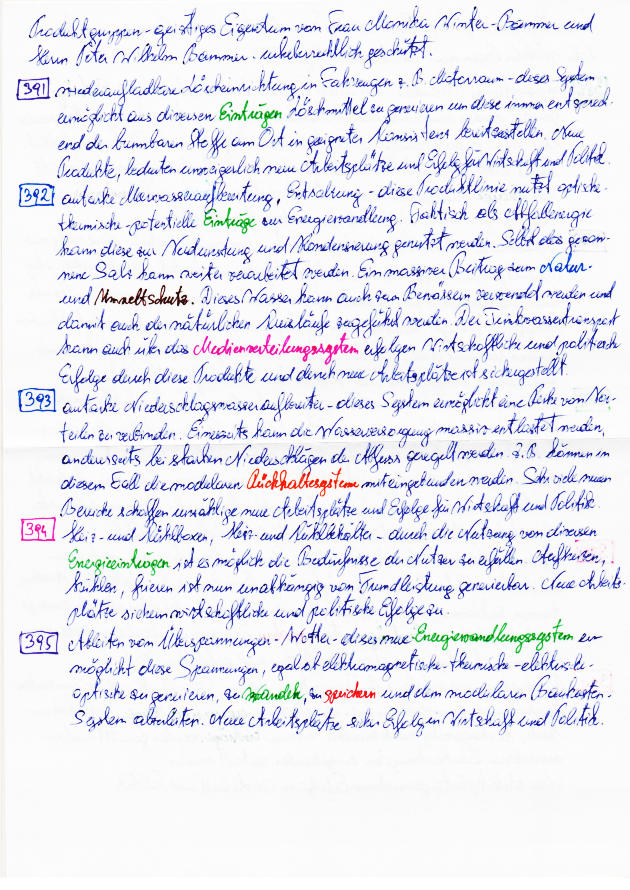 Produktgruppen - geistiges Eigentum von Frau Monika Winter-Bammer und
Herrn Peter Wilhelm Bammer - urheberrechtlich geschützt.
391 wiederaufladbare Löscheinrichtung in Fahrzeugen z. B. Motorraum - dieses System
ermöglicht aus diversen Einträgen Löschmittel zu generieren um diese immer entsprech-
end der brennbaren Stoffe am Ort in geeigneter Konsistenz bereitzustellen. Neue
Produkte, bedeuten unweigerlich neue Arbeitsplätze und Erfolg für Wirtschaft und Politik.
392 autarke Meerwasseraufbereitung, Entsalzung - diese Produktlinie nutzt optische-
thermische-potentielle Einträge zur Energiewandlung. Faktisch als Abfallenergie
kann diese zur Verdunstung und Kondensierung genutzt werden. Selbst das gewon-
nene Salz kann weiter verarbeitet werden. Ein massiver Beitrag zum Natur-
und Umweltschutz. Dieses Wasser kann auch zum Bewässern verwendet werden und
damit auch den natürlichen Kreisläufe zugeführt werden. Der Trinkwassertransport
kann auch über das Medienverteilungssystem erfolgen. Wirtschaftliche und politische
Erfolge durch diese Produkte und durch neue Arbeitsplätze ist sichergestellt.
393 autarke Niederschlagswasseraufbereiter - dieses System ermöglicht eine Reihe von Vor-
teilen zu verbinden. Einerseits kann die Wasserversorgung massiv entlastet werden,
anderseits bei starken Niederschlägen der Abfluss geregelt werden. z. B. können in
diesem Fall die modularen Rückhaltesysteme mit eingebunden werden. Sehr viele neuen
Bereiche schaffen unzählige neue Arbeitsplätze und Erfolge für Wirtschaft und Politik.
394 Heiz- und Kühlboxen, Heiz- und Kühlbehälter - durch die Nutzung von diversen
Energieeinträgen ist es möglich die Bedürfnisse der Nutzer zu erfüllen. Aufheizen,
kühlen, frieren ist nun unabhängig vom Fremdleistung generierbar. Neue Arbeits-
plätze sichern wirtschaftliche und politische Erfolge zu.
395 Ableiten von Überspannungen - Wetter - dieses neue Energiewandlungssystem er-
möglicht diese Spannungen, egal ob elektromagnetische-thermische-elektrische-
optische zu generieren, zu wandeln, zu speichern und dem modularen Baukasten-
System abzuleiten. Neue Arbeitsplätze sichern Erfolg in Wirtschaft und Politik.